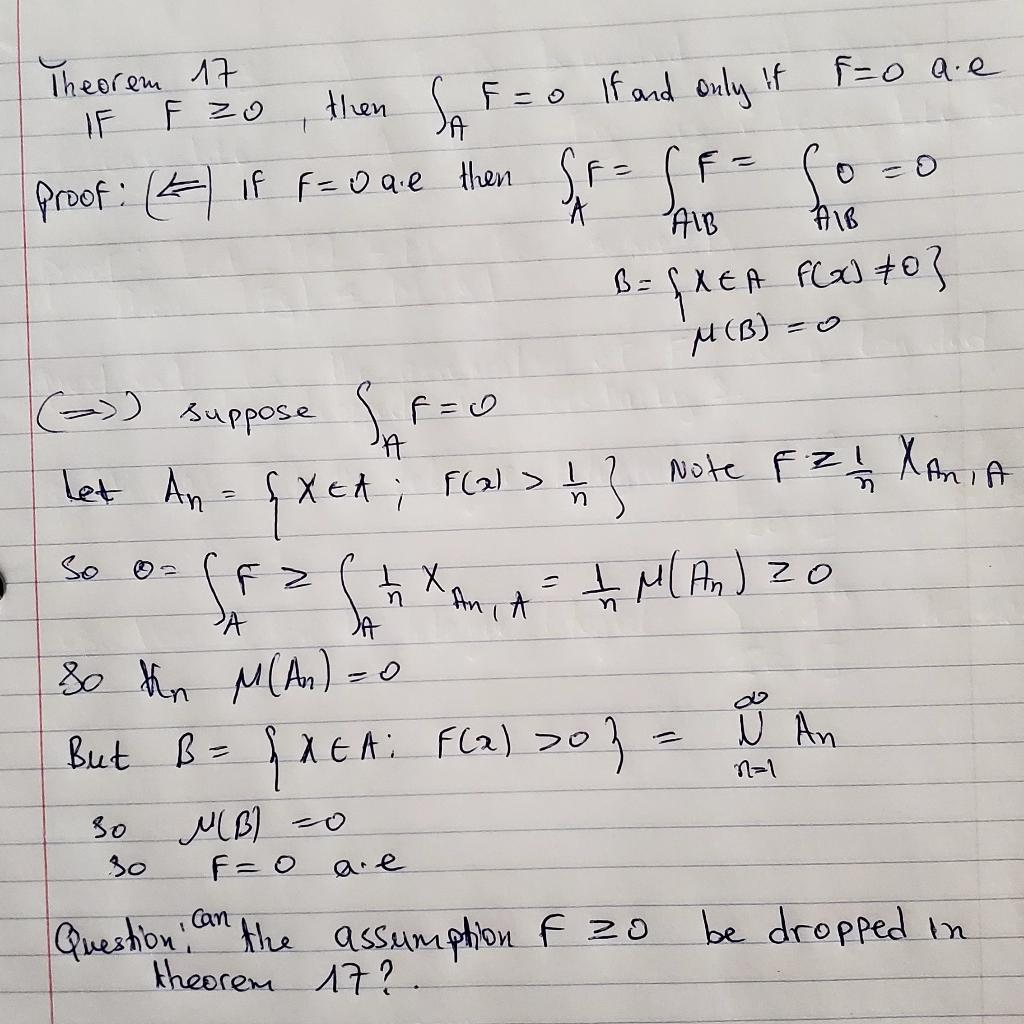 Theorem 17
IF F ≥ 0, then ∫_A F = 0 If and only if F = 0 a.e
Proof: (⇐) if F = 0 a.e then ∫_A F = ∫_{A\B} F = ∫_{A\B} 0 = 0
B = {x ∈ A F(x) ≠ 0}
μ(B) = 0
(⇒) suppose ∫_A F = 0
Let A_n = {x ∈ A ; F(x) > 1/n} Note F ≥ 1/n χ_{A_n, A}
So 0 = ∫_A F ≥ ∫_A 1/n χ_{A_n, A} = 1/n μ(A_n) ≥ 0
So ∀n μ(A_n) = 0
But B = {x ∈ A: F(x) > 0} = ∪_{n=1}^∞ A_n
so μ(B) = 0
so F = 0 a.e
Question: can the assumption F ≥ 0 be dropped in
theorem 17?.